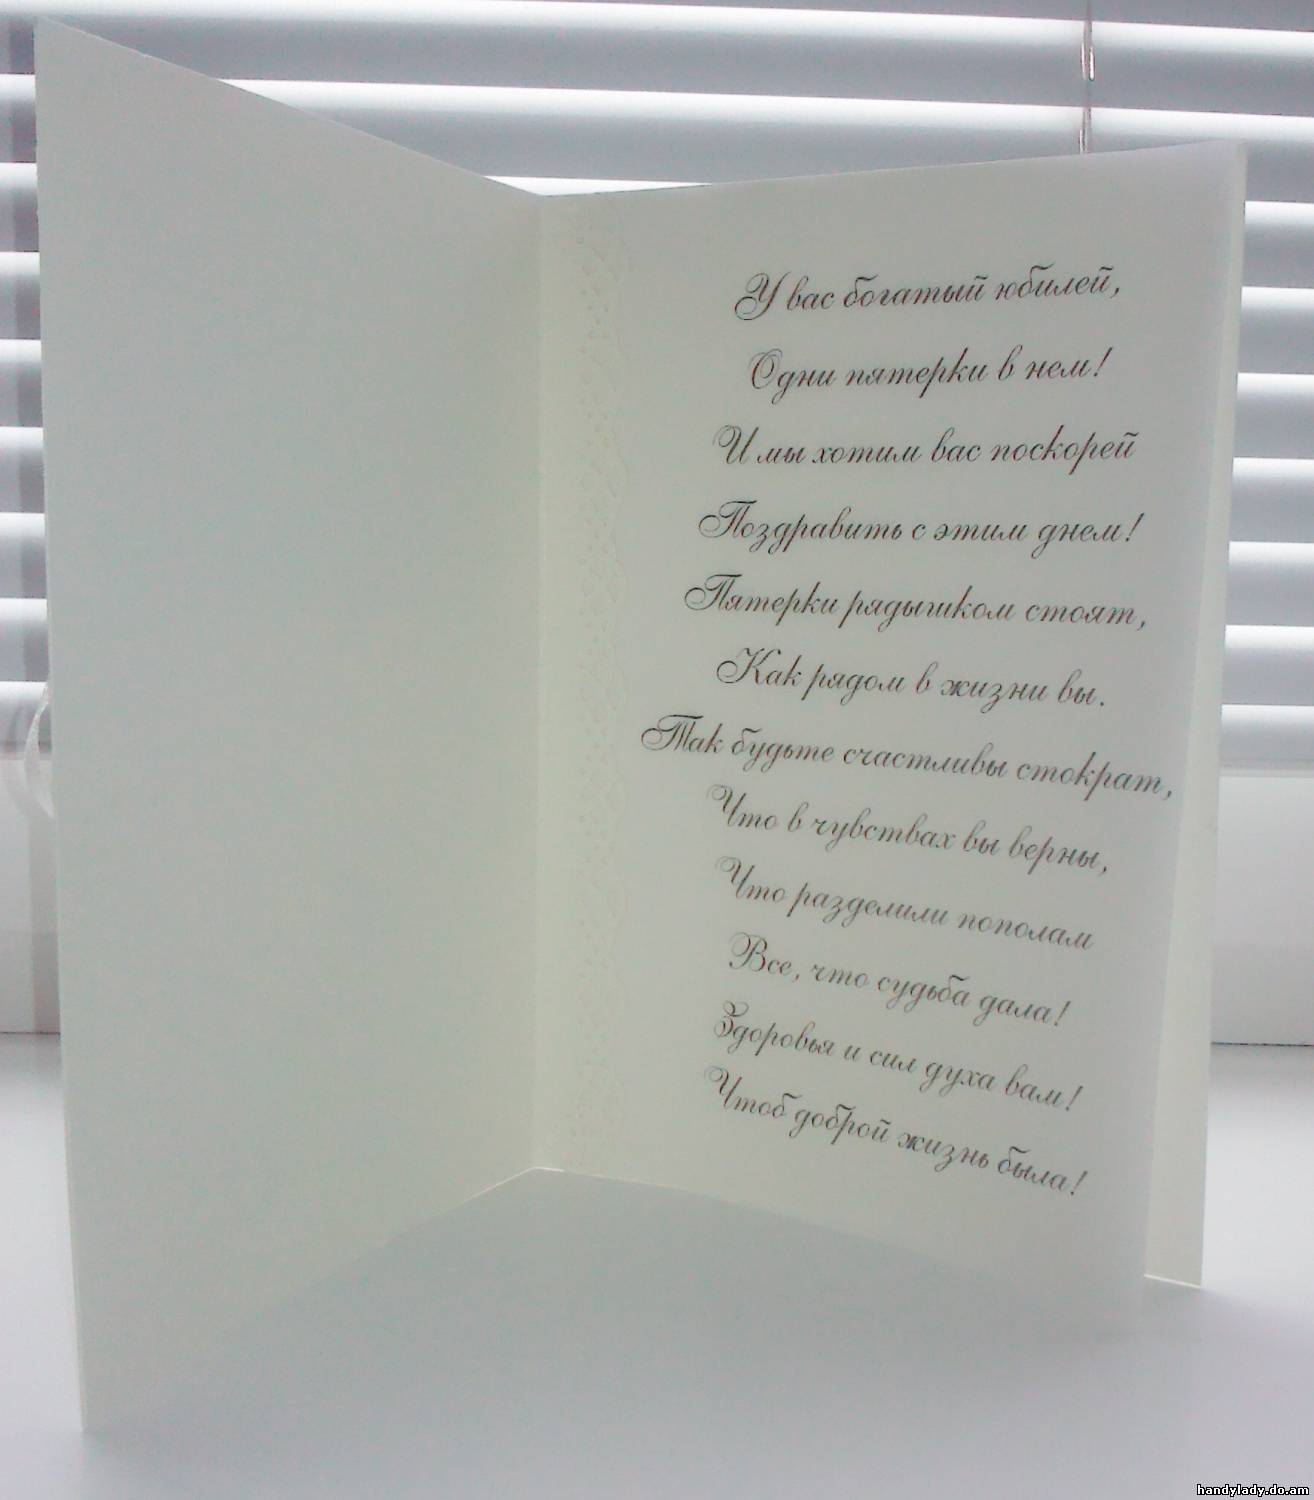 У вас богатый юбилей,
Одни пятерки в нем!
И мы хотим вас поскорей
Поздравить с этим днем!
Пятерки рядышком стоят,
Как рядом в жизни вы.
Так будьте счастливы стократ,
Что в чувствах вы верны,
Что разделили пополам
Все, что судьба дала!
Здоровья и сил духа вам!
Чтоб доброй жизнь была!
handylady.do.am